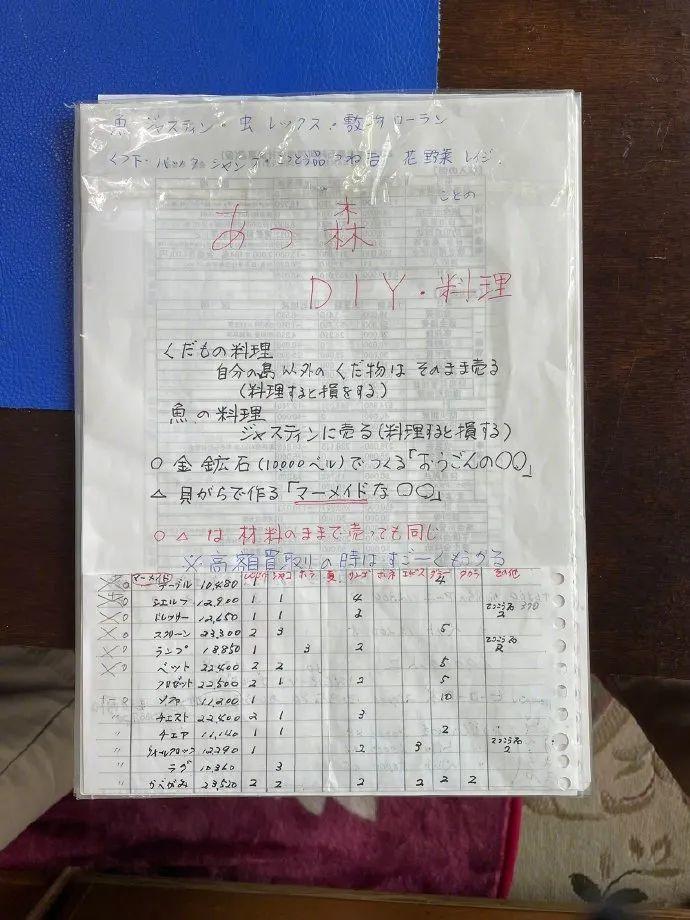 魚 ジャスティン・虫 レックス・敷物 ローラン
くつ下・バッグ シャンク・こっとう品 つねきち 花 野菜 レイジ
ことの
あつ森
DIY・料理
くだもの料理
自分の島以外のくだ物はそのまま売る
(料理すると損をする)
魚の料理
ジャスティンに売る(料理すると損する)
○ 金鉱石(10,000ベル)でつくる「おうごんの○○」
△ 貝がらで作る「マーメイドな○○」
○△は材料のままで売っても同じ
※高額買取りの時はすごーくもうかる
マーメイド シャコ ホラ 夏 サンゴ タカラ その他
テーブル 10,480 4
シェルフ 12,900 1 1 4 370
ドレッサー 12,650 1 1 2 2
スクリーン 23,300 2 3 5
ランプ 18,850 1 3 2 2
ベット 22,400 2 2 5
クロゼット 22,500 2 1 2 5
ソファ 11,200 1 10
〃 チェスト 22,400 2 1 3
〃 チェア 11,140 1 1 2
〃 ウォールクロック 12,290 1 2 3 2
〃 ラグ 10,360 3
〃 かべがみ 23,520 2 2 2 2 2 2